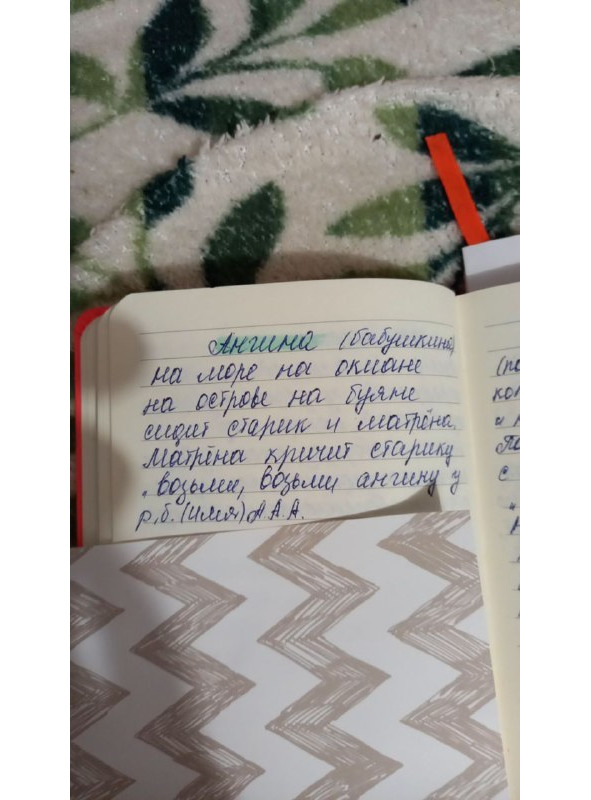 Ангина (бабушкина)
на море на окиане
на острове на буяне
сидит старик и матрёна.
Матрёна кричит старику
возьми, возьми ангину у
р.б. (имя) А.А.А.
(по
кол
и
По
с